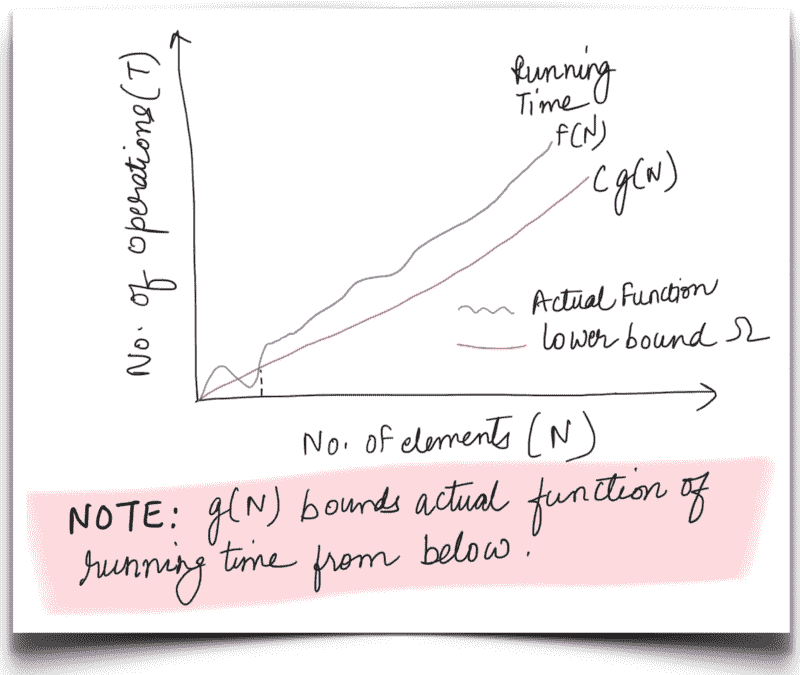 No. of operations (T)
Running
Time
f(N)
C g(N)
Actual function
lower bound Ω
No. of elements (N)
NOTE: g(N) bounds actual function of
running time from below.